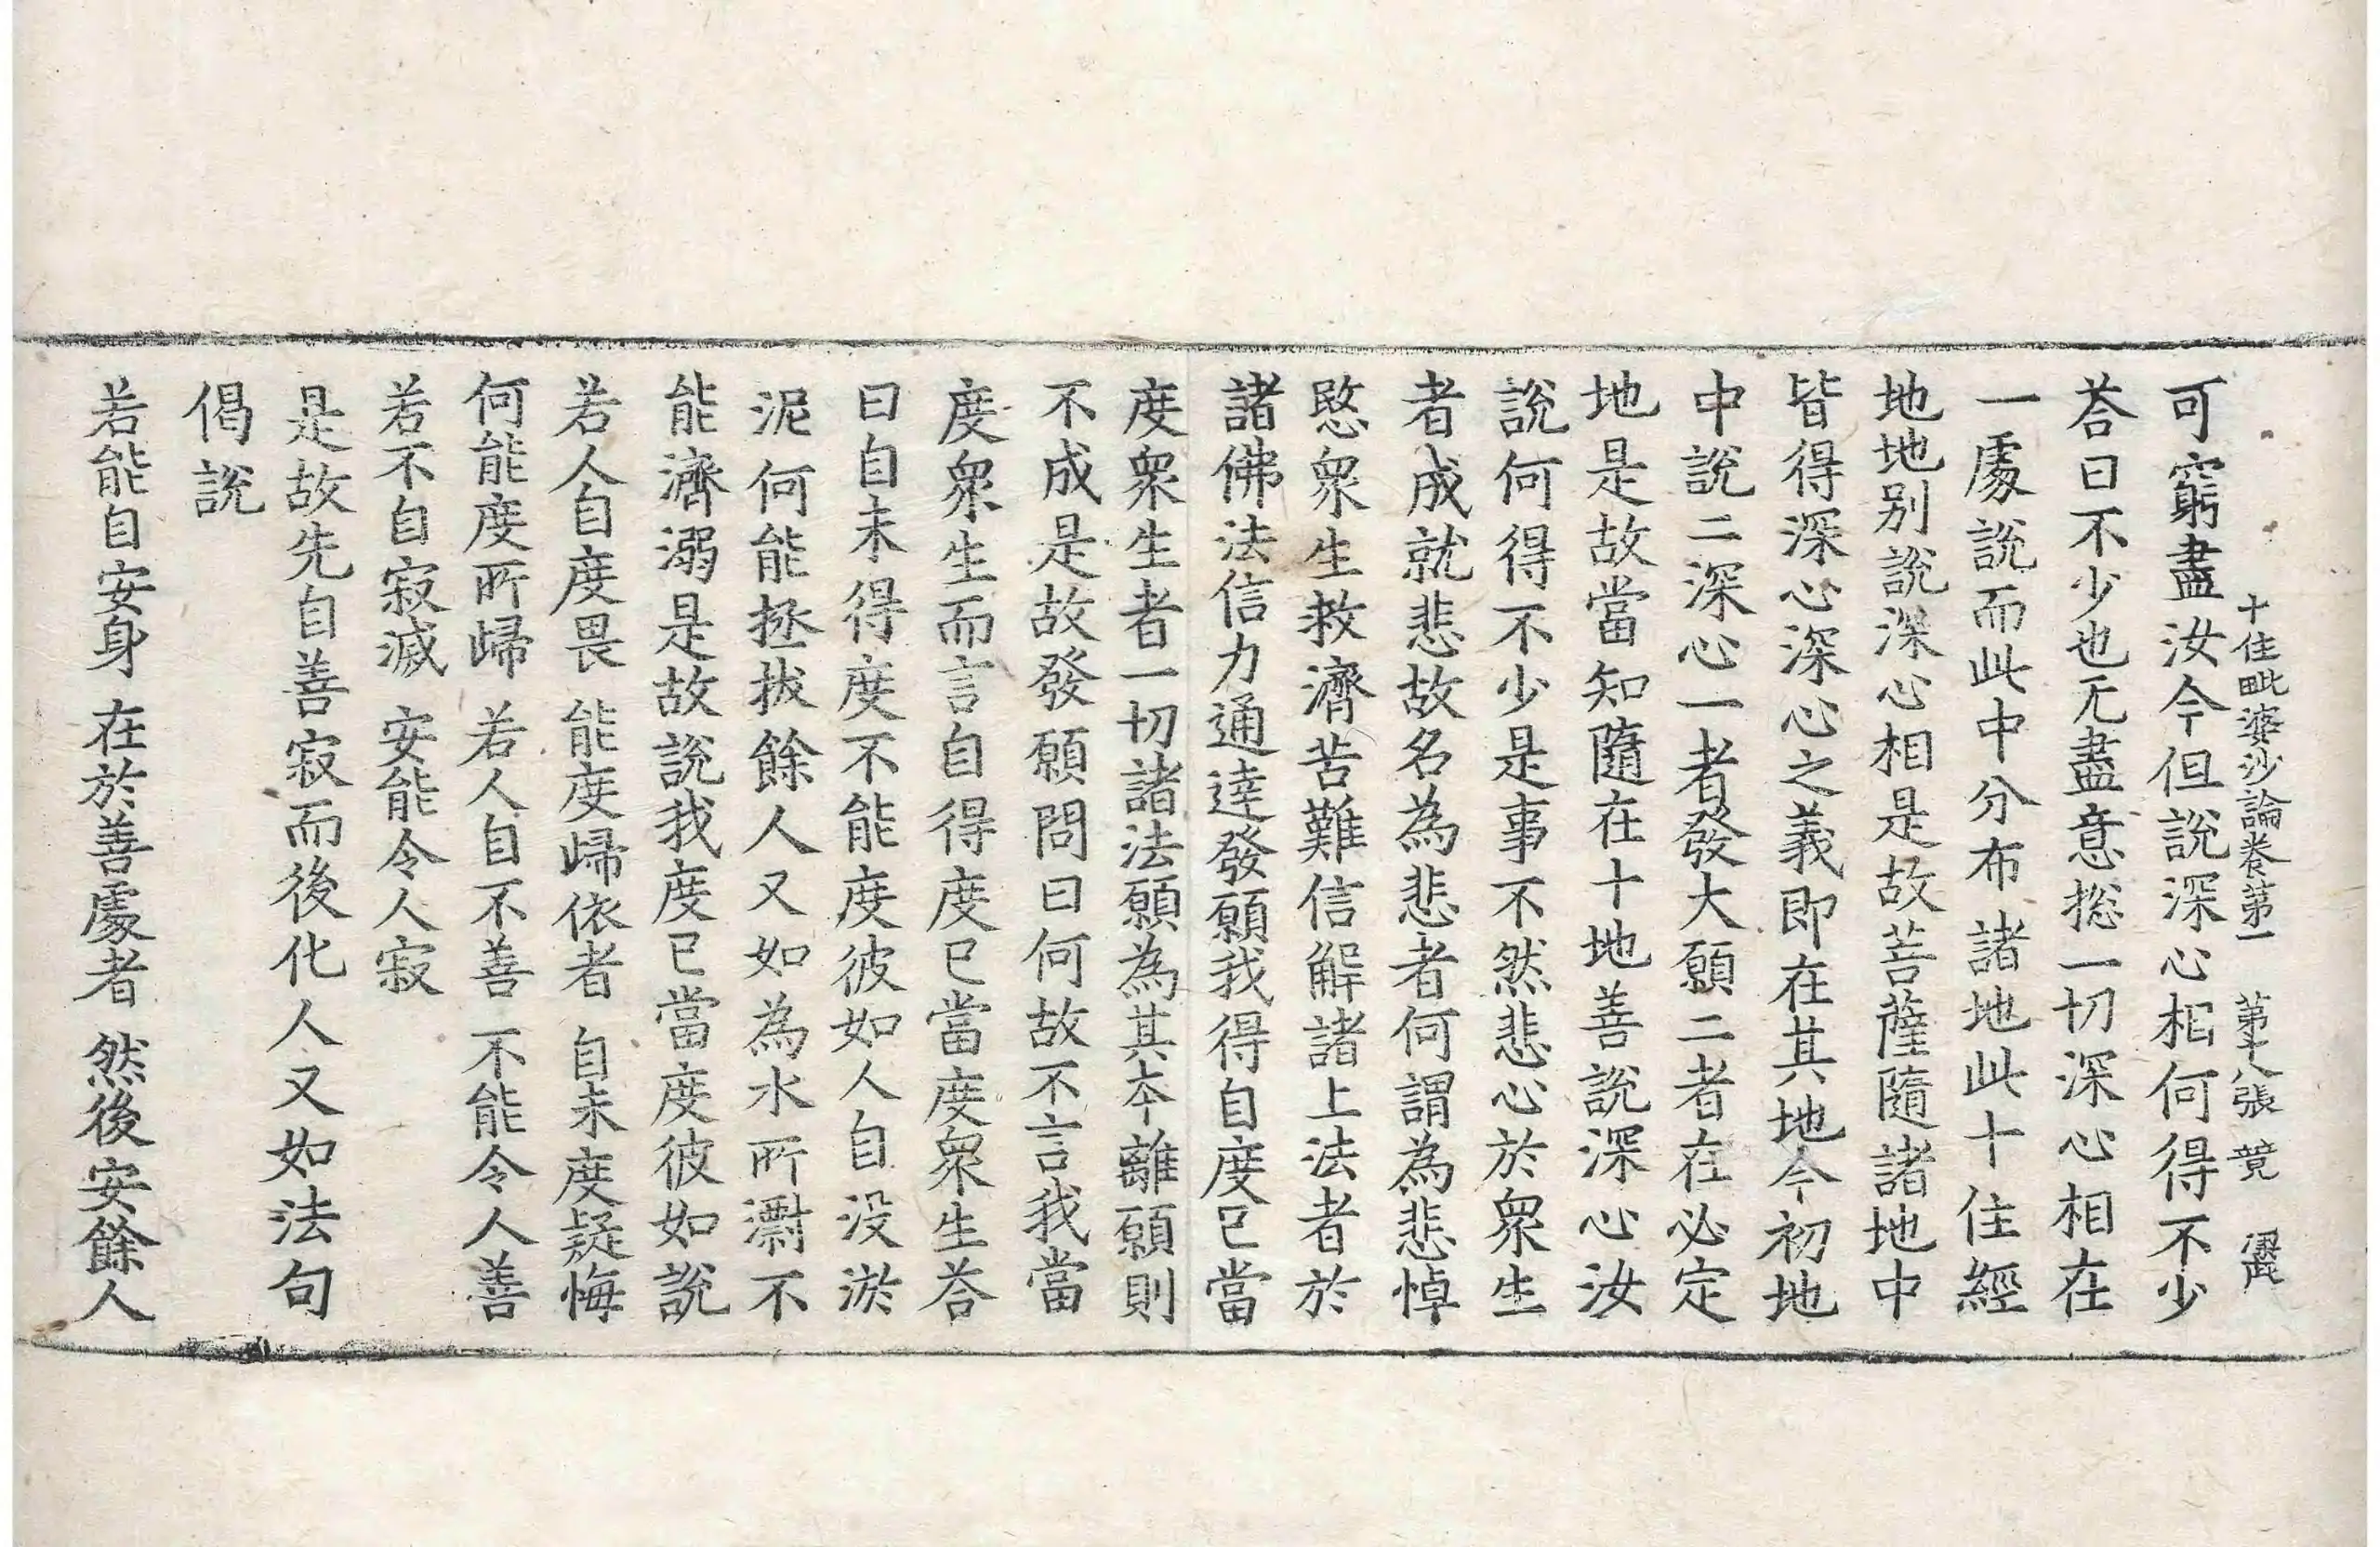 十住毗婆沙論卷第一 第十八張 競
可窮盡汝今但說深心相何得不少
荅曰不少也无盡意揔一切深心相在
一處說而此中分布諸地此十住經
地地別說深心相是故菩薩隨諸地中
皆得深心深心之義即在其地今初地
中說二深心一者發大願二者在必定
地是故當知隨在十地善說深心汝
說何得不少是事不然悲心於衆生
者成就悲故名為悲者何謂為悲悼
愍衆生救濟苦難信解諸上法者於
諸佛法信力通達發願我得自度已當
度衆生者一切諸法願為其本離願則
不成是故發願問曰何故不言我當
度衆生而言自得度已當度衆生荅
曰自未得度不能度彼如人自没淤
泥何能拯拔餘人又如為水所㵋不
能濟溺是故說我度已當度彼如說
若人自度畏 能度歸依者 自未度疑悔
何能度所歸 若人自不善 不能令人善
若不自寂滅 安能令人寂
是故先自善寂而後化人又如法句
偈說
若能自安身 在於善處者 然後安餘人